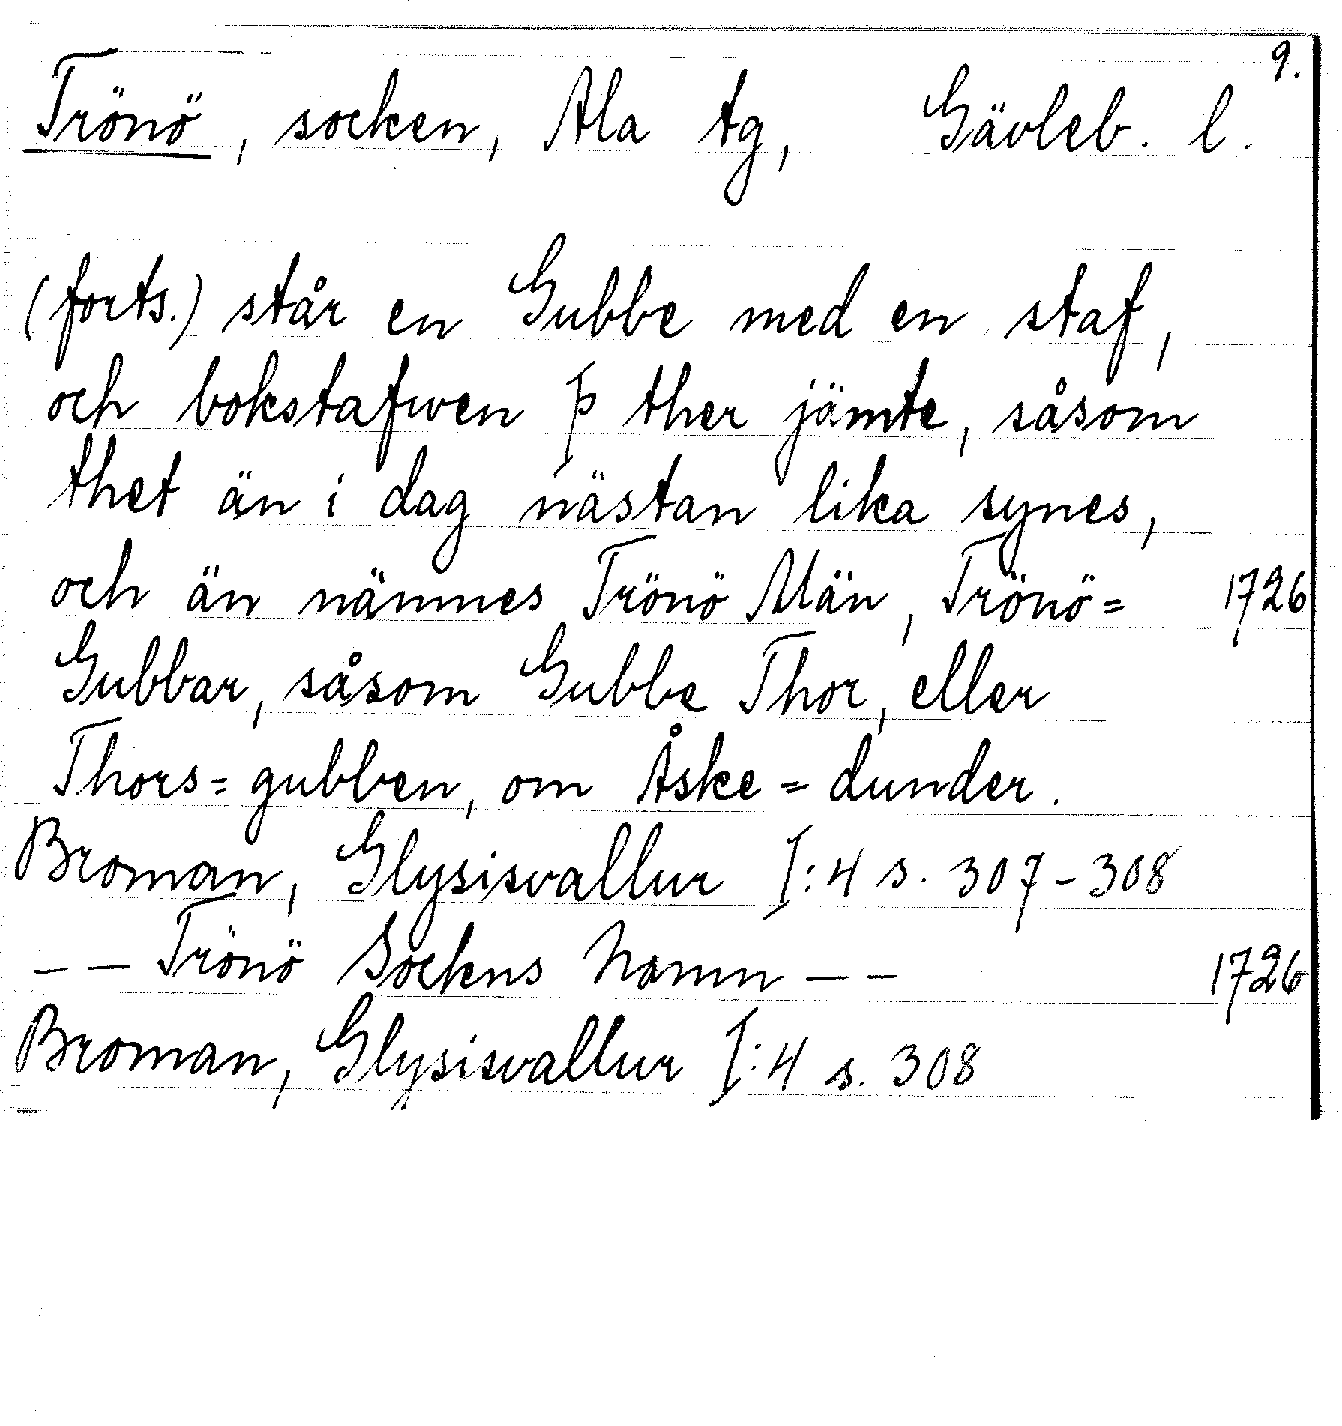 9.
Trönö, socken, Ala tg, Gävleb. l.
(forts.) står en Gubbe med en staf,
och bokstafwen Þ ther jämte, såsom
thet än i dag nästan lika synes,
och än nämnes Trönö Män, Trönö= 1726
Gubbar, såsom Gubbe Thor, eller
Thors=gubben, om Åske=dunder.
Broman, Glysisvallur I:4 s. 307-308
-- Trönö Sockns Namn -- 1726
Broman, Glysisvallur I:4 s. 308